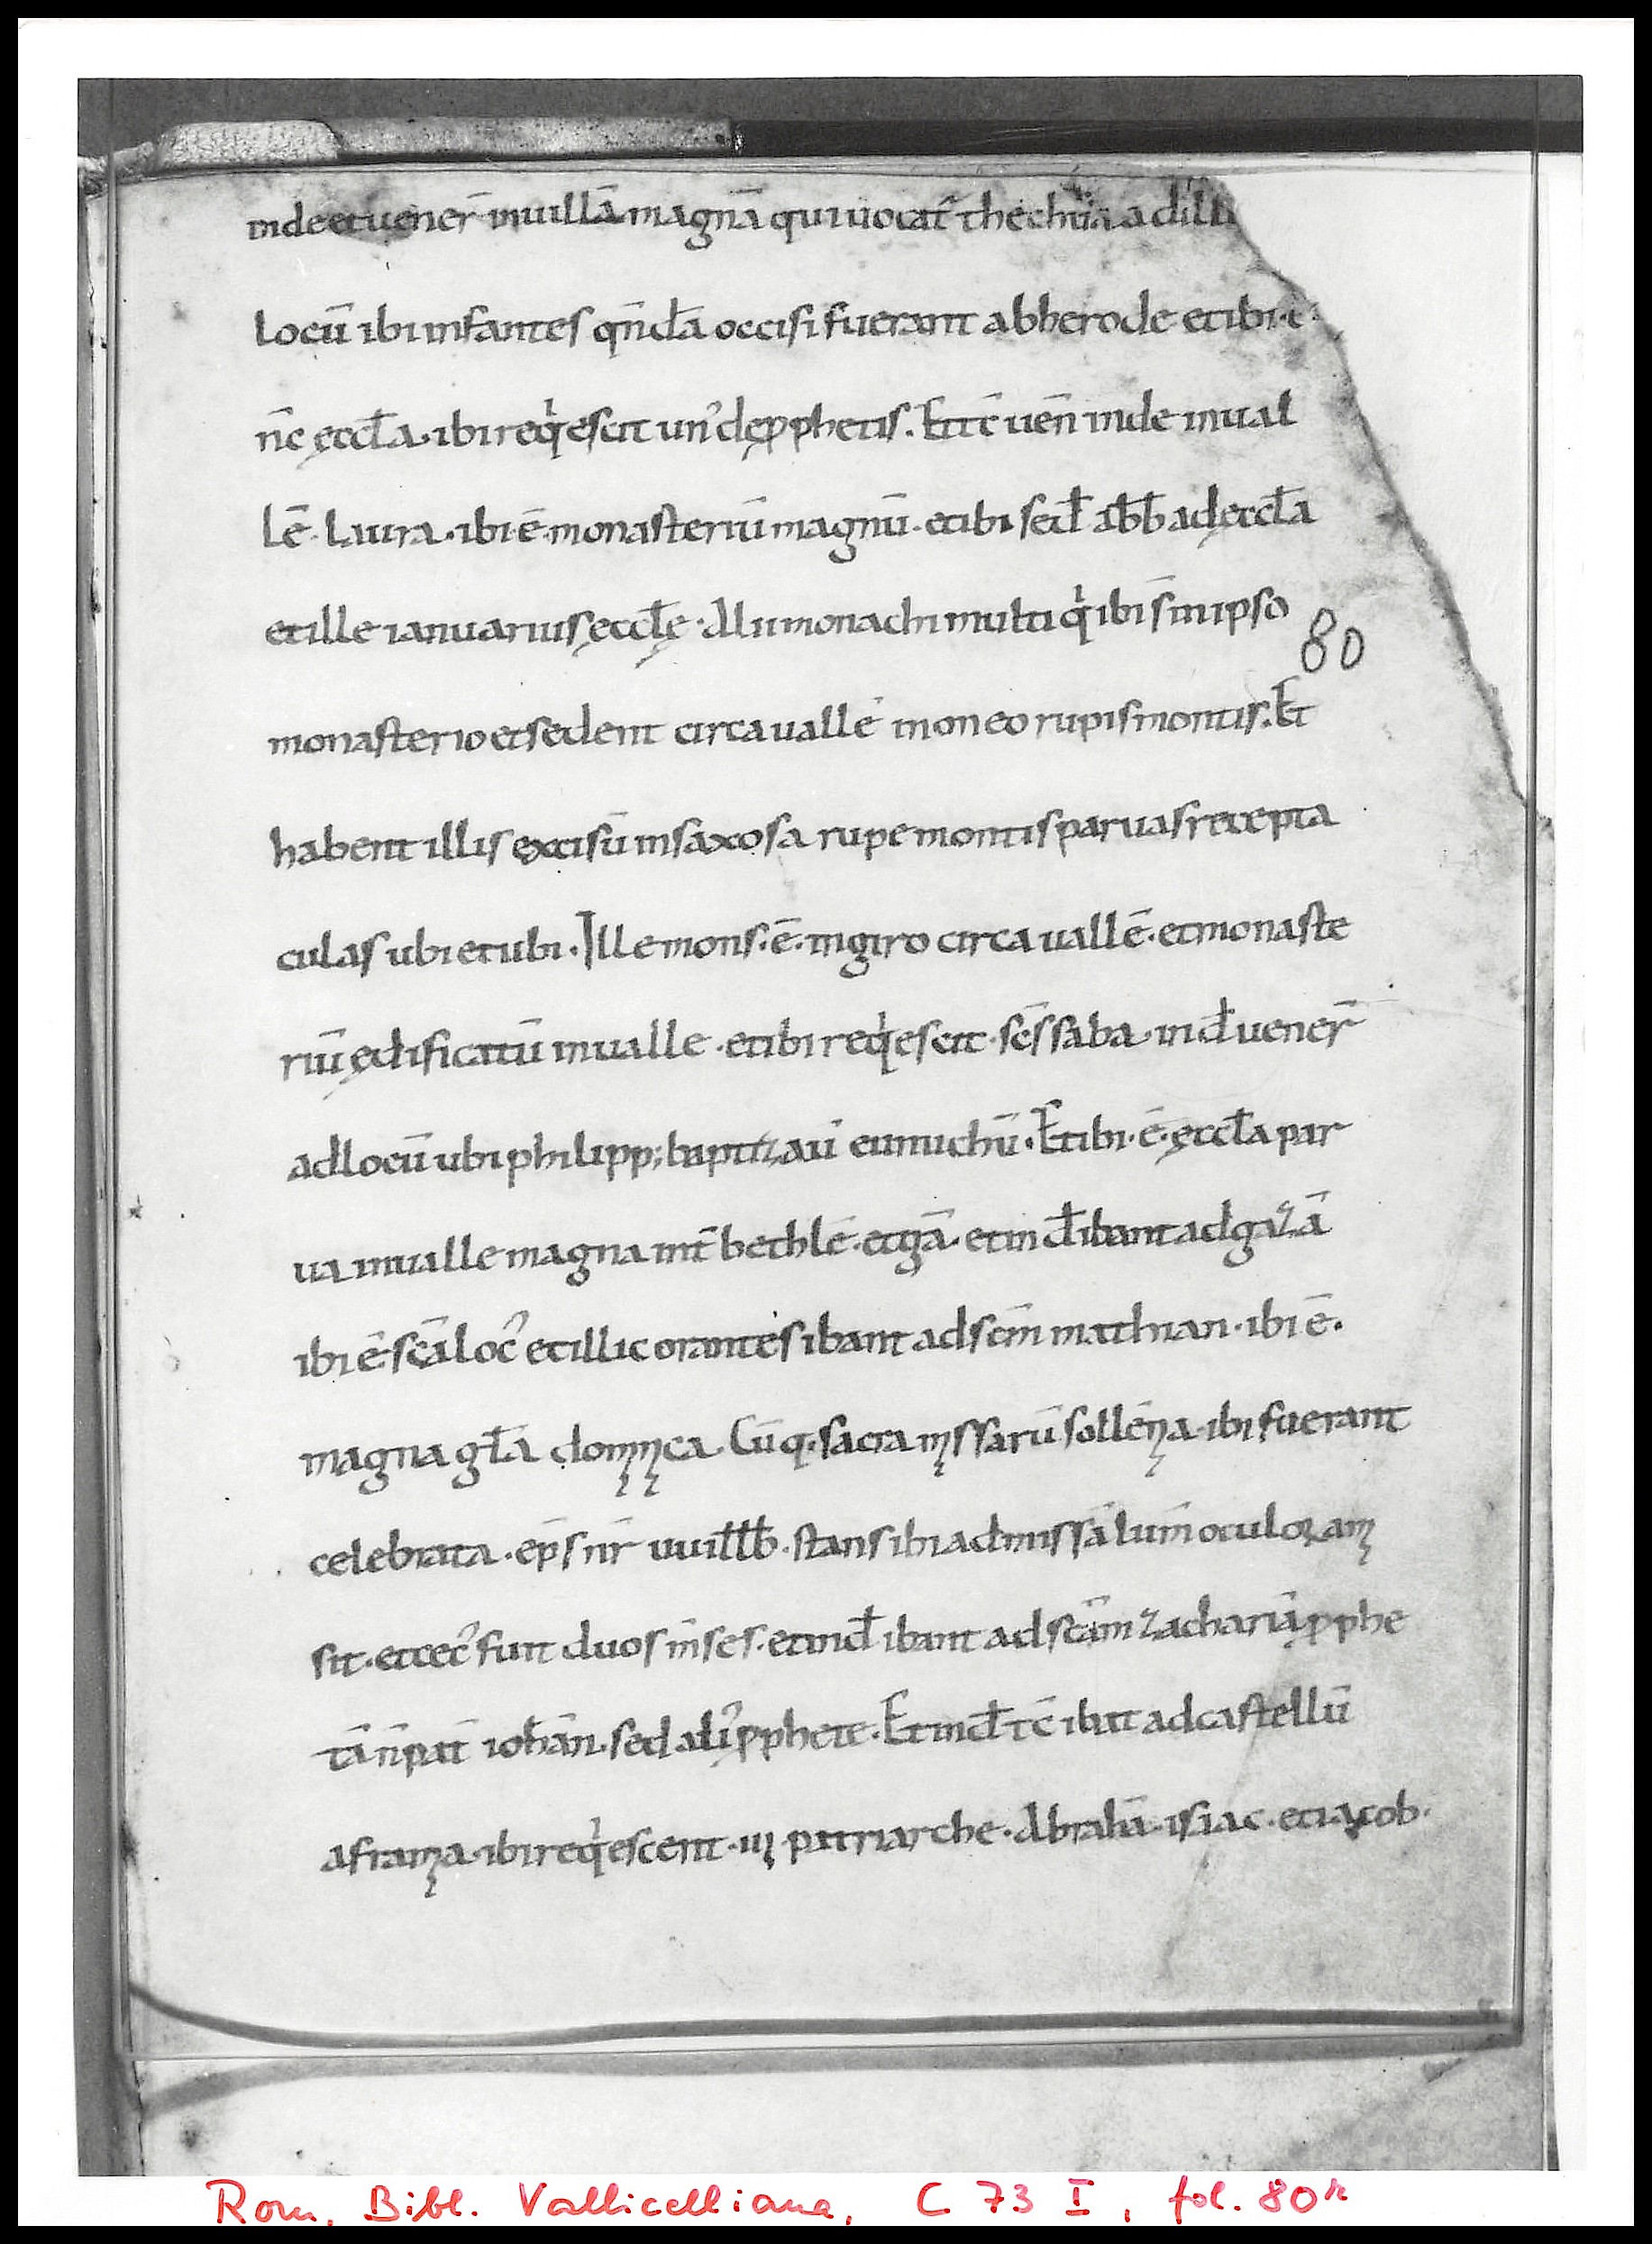 inde et uener̄ in uillā magnā qui uocat̄ thechua ad ill
locū ibi infantes qn̄dā occisi fuerant ab herode et ibi · ē ·
nc̄ ęccła · ibi req̇escit un᾽ de ꝓphetis. Et tc̄ uēn inde in ual
lē · laura · ibi · ē · monasteriū magnū · et ibi sed̄ abb̄ ad ęccła
et ille ianuarius ęccłę · Alii monachi multi q̇ ibi s̄ in ipso
monasterio et sedent circa uallē in on eo rupis montis. Et
habent illis excisū in saxosa rupe montis paruas recepta
culas ubi et ubi · Ille mons · ē · in giro circa uallē · et monaste
riū ędificatū in ualle · et ibi req̇escit · sc̄s saba · ind̄ uener̄
ad locū ubi philipp; baptizaū eunuchū · Et ibi · ē · ęccła par
ua in ualle magna int̄ bethlē · et gā · et ind̄ ibant ad gazā
ibi ē · sc̄a loc᾽ et illic orantes ibant ad scm̄ mathian · ibi ē ·
magna gła dominica. Cū q· sacra missarū sollēnia · ibi fuerant
celebrata · ep̄s nr̄ uuillb̄ · stans ibi ad missā lum̄ oculoꝝ ami
sit · et cec᾽ fuit duos m̄ses · et ind̄ ibant ad scām zachariā ꝓphe
tā n̄ pat̄ iohān · sed ali᾽ ꝓphete · Et ind̄ tc̄ ibat ad castellū
aframia · ibi req̇escent · iii · patriarche · Abrahā · isiac · et iacob ·
80
Rom, Bibl. Vallicelliana, C 73 I, fol. 80r